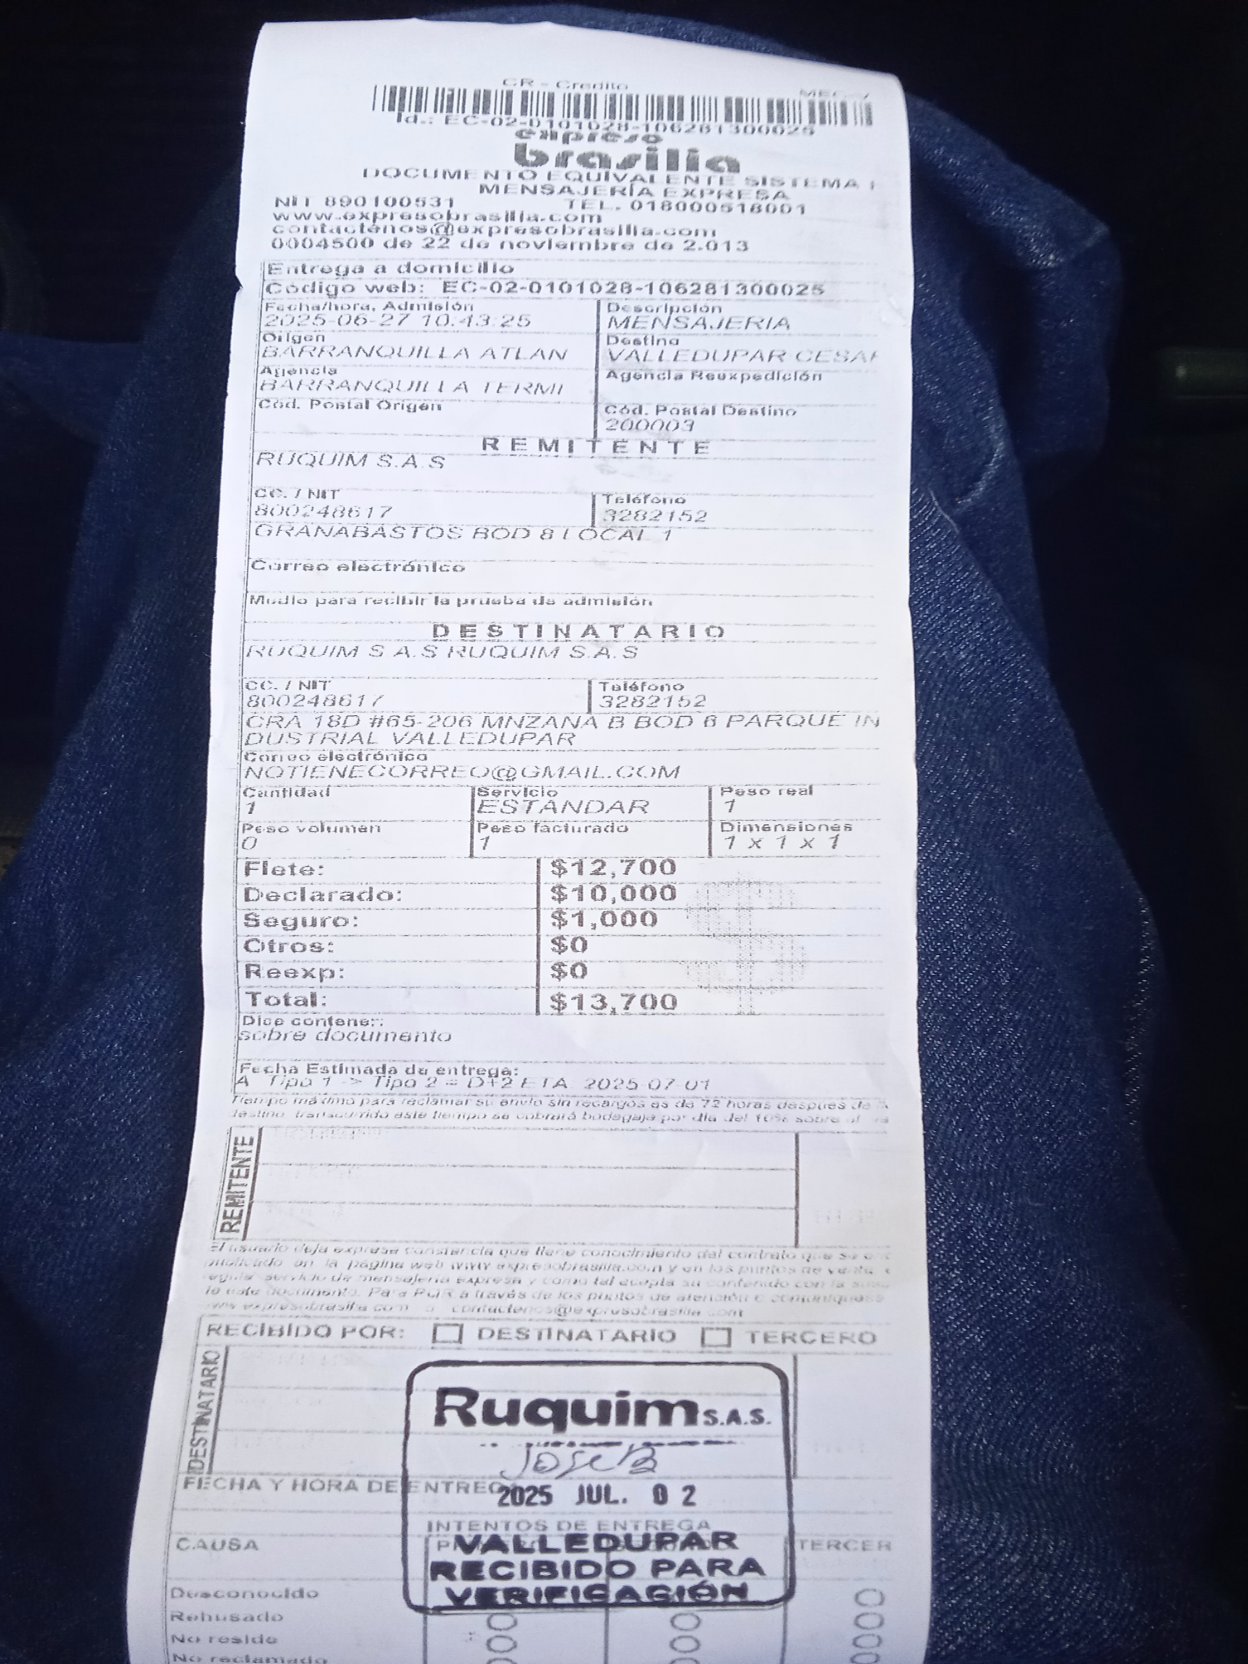 CR - Credito
Id.: EC-02-0101028-106281300025
expreso
brasilia
DOCUMENTO EQUIVALENTE SISTEMA
MENSAJERÍA EXPRESA
NIT 890100531 TEL. 018000518001
www.expresobrasilia.com
contactenos@expresobrasilia.com
0004500 de 22 de noviembre de 2.013
Entrega a domicilio
Código web: EC-02-0101028-106281300025
Fecha/hora, Admisión Descripción
2025-06-27 10:43:25 MENSAJERIA
Origen Destino
BARRANQUILLA ATLAN VALLEDUPAR CESAR
Agencia Agencia Reexpedición
BARRANQUILLA TERMI
Cód. Postal Origen Cód. Postal Destino
200003
REMITENTE
RUQUIM S.A.S
CC. / NIT Teléfono
800248617 3282152
GRANABASTOS BOD 8 LOCAL 1
Correo electrónico
Medio para recibir la prueba de admisión
DESTINATARIO
RUQUIM S.A.S RUQUIM S.A.S
CC. / NIT Teléfono
800248617 3282152
CRA 18D #65-206 MNZANA B BOD 6 PARQUE IN
DUSTRIAL VALLEDUPAR
Correo electrónico
NOTIENECORREO@GMAIL.COM
Cantidad Servicio Peso real
1 ESTANDAR 1
Peso volumen Peso facturado Dimensiones
0 1 1 x 1 x 1
Flete: $12,700
Declarado: $10,000
Seguro: $1,000
Otros: $0
Reexp: $0
Total: $13,700
Dice contener:
sobre documento
Fecha Estimada de entrega:
A Tipo 1 -> Tipo 2 = D+2 ETA 2025-07-01
Tiempo máximo para reclamar su envío sin recargos es de 72 horas después de
destino, transcurrido este tiempo se cobrará bodegaje por día del 10% sobre el
REMITENTE
El usuario deja expresa constancia que tiene conocimiento del contrato que se
publicado en la página web www.expresobrasilia.com y en los puntos de venta,
regula servicio de mensajería expresa y como tal acepta su contenido con la
de este documento. Para PQR a través de los puntos de atención o comuníquese
www.expresobrasilia.com o contactenos@expresobrasilia.com
RECIBIDO POR: DESTINATARIO TERCERO
DESTINATARIO
Ruquim S.A.S.
Jose B
FECHA Y HORA DE ENTREGA
2025 JUL. 02
INTENTOS DE ENTREGA
CAUSA TERCER
VALLEDUPAR
RECIBIDO PARA
VERIFICACIÓN
Desconocido
Rehusado
No reside
No reclamado